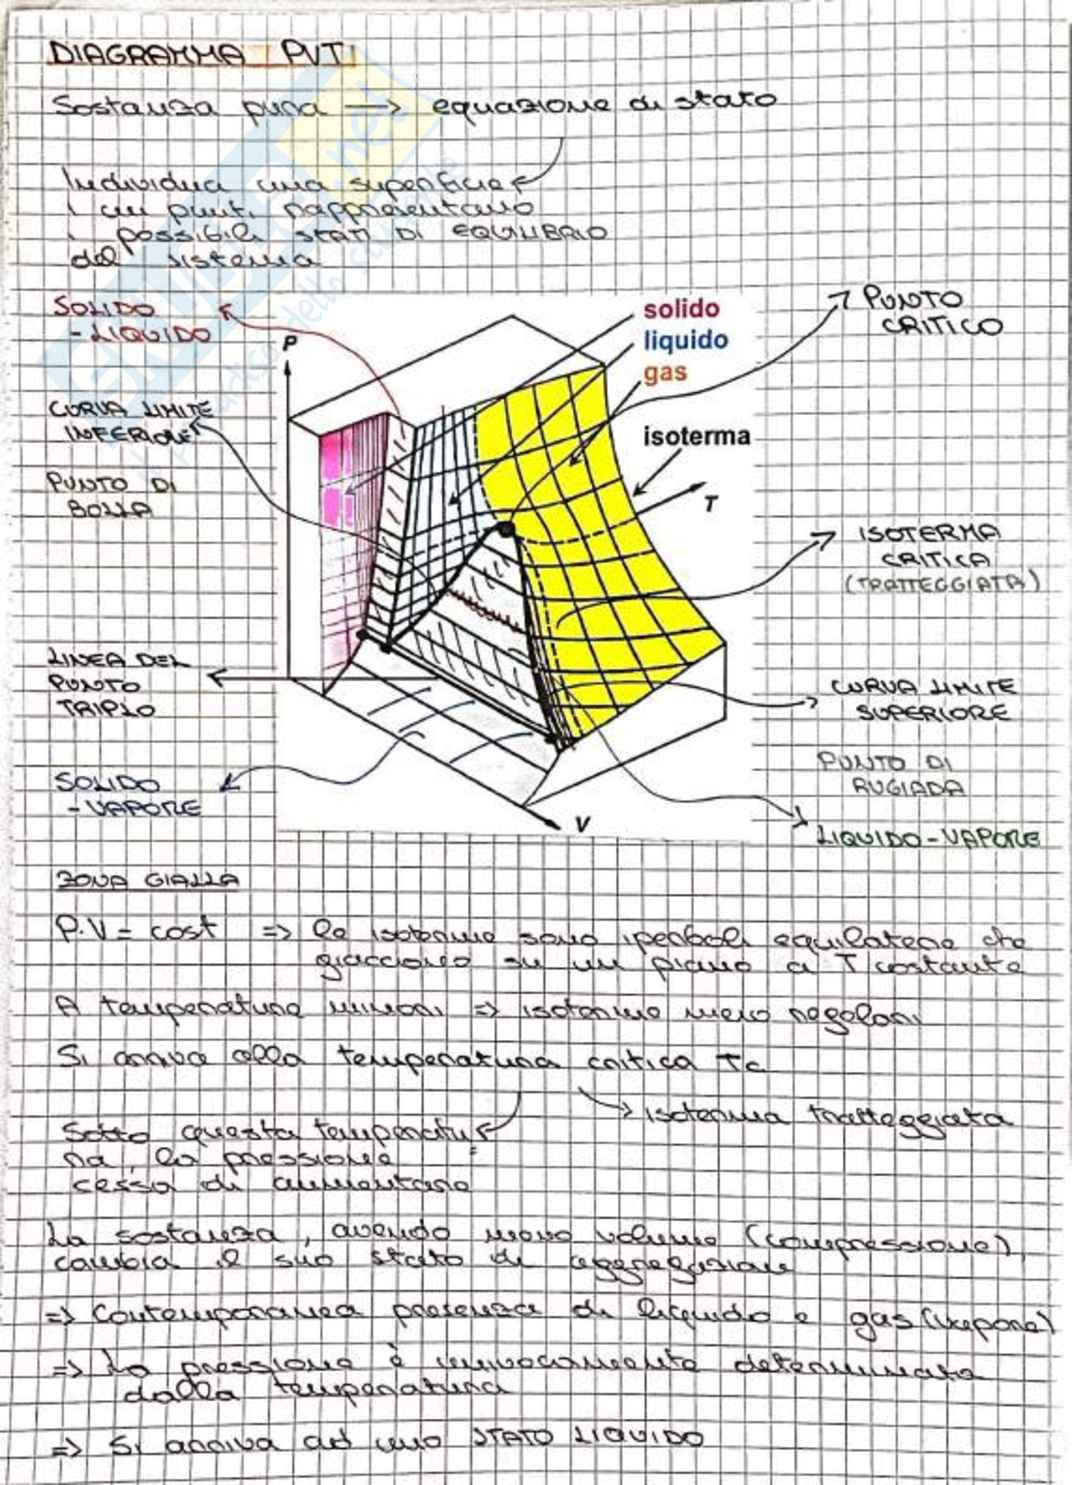 DIAGRAMMA PVT
Sostanza pura → equazione di stato
Individua una superficie
i cui punti rappresentano
i possibili STATI DI EQUILIBRIO
del sistema
SOLIDO
- LIQUIDO
solido
liquido
gas
PUNTO
CRITICO
P
CURVA LIMITE
INFERIORE
isoterma
PUNTO DI
BOLLA
T
ISOTERMA
CRITICA
(TRATTEGGIATA)
LINEA DEL
PUNTO
TRIPLO
CURVA LIMITE
SUPERIORE
PUNTO DI
RUGIADA
SOLIDO
- VAPORE
V
LIQUIDO - VAPORE
ZONA GIALLA
P.V = cost => le isoterme sono iperboli equilatere che
giacciono su un piano a T costante
A temperature minori => isoterme meno regolari
Si arriva alla temperatura critica Tc
isoterma tratteggiata
Sotto questa temperatu=
ra, la pressione
cessa di aumentare
La sostanza, avendo meno volume (compressione),
cambia il suo stato di aggregazione
=> Contemporanea presenza di liquido e gas (vapore)
=> La pressione è univocamente determinata
dalla temperatura
=> Si arriva ad uno STATO LIQUIDO